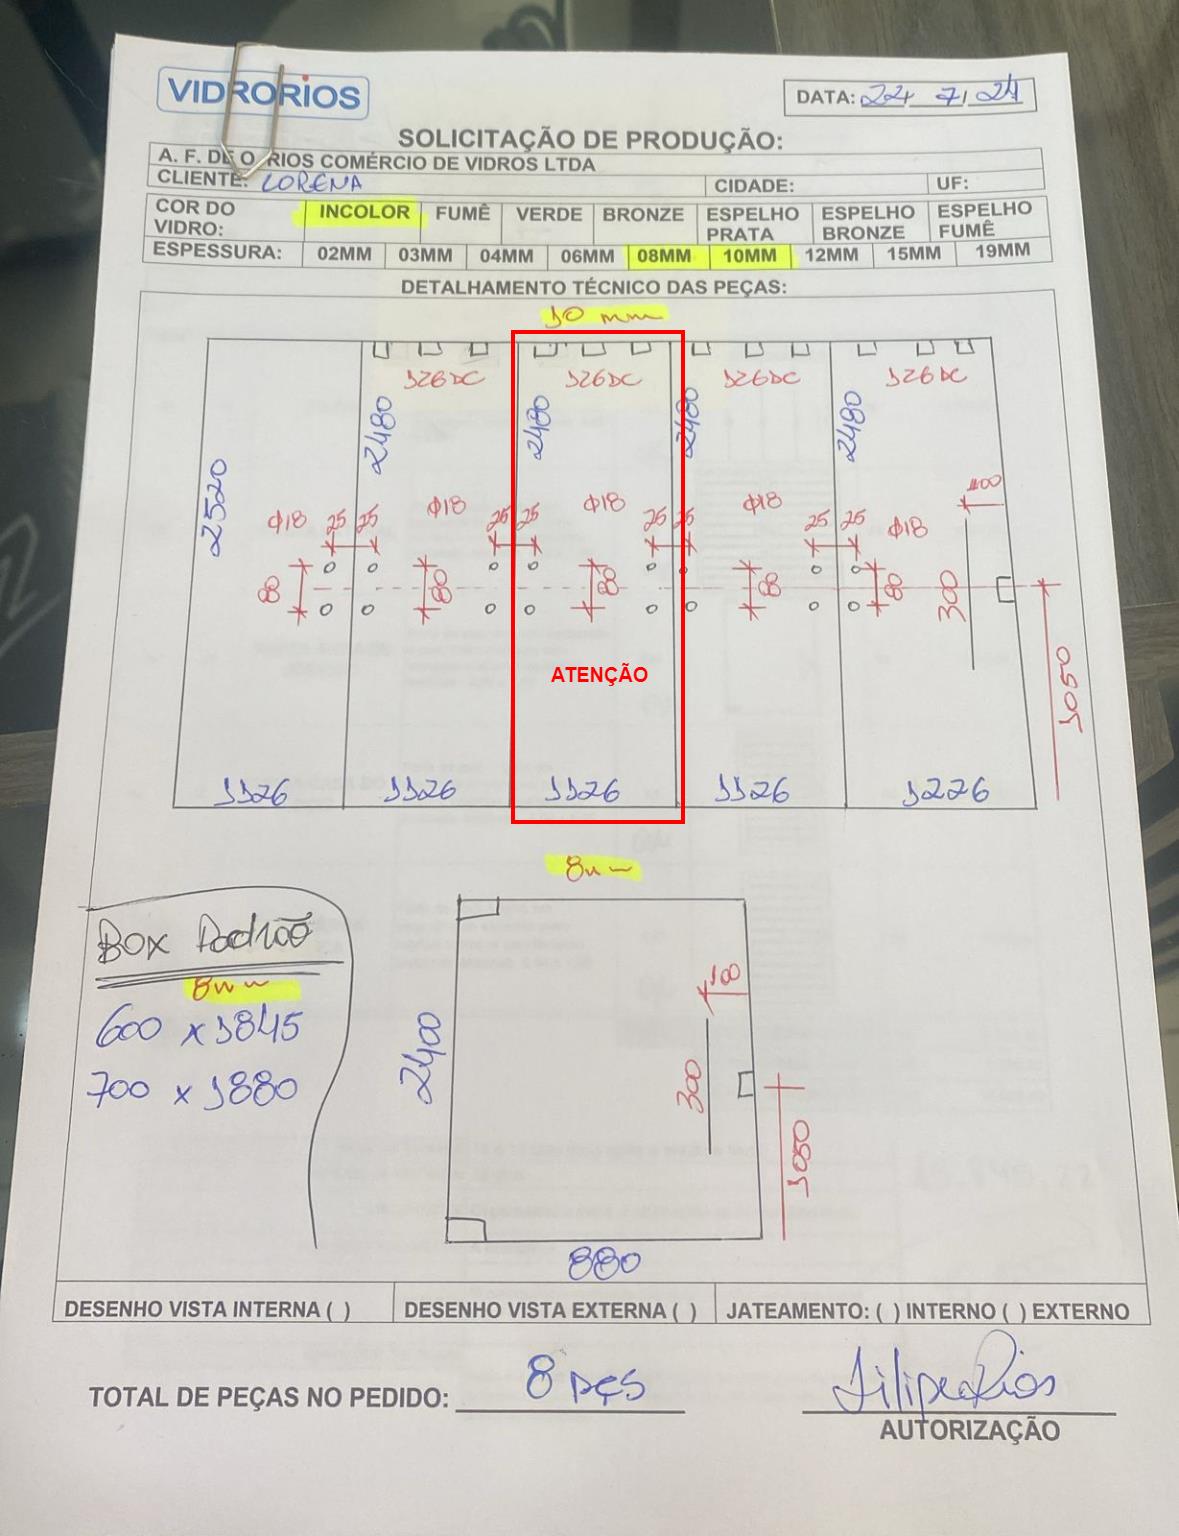 VIDRORIOS
DATA: 22/7/24
SOLICITAÇÃO DE PRODUÇÃO:
A. F. DE O. RIOS COMÉRCIO DE VIDROS LTDA
CLIENTE: LORENA CIDADE: UF:
COR DO VIDRO: INCOLOR FUMÊ VERDE BRONZE ESPELHO PRATA ESPELHO BRONZE ESPELHO FUMÊ
ESPESSURA: 02MM 03MM 04MM 06MM 08MM 10MM 12MM 15MM 19MM
DETALHAMENTO TÉCNICO DAS PEÇAS:
10 mm
126DC 126DC 126DC 126DC
2520 2480 2480 2480 2480
100
Φ18 25 25 Φ18 25 25 Φ18 25 25 Φ18 25 25 Φ18
80 80 80 80 80 300
1050
ATENÇÃO
1126 1126 1126 1126 1226
8mm
Box Padrão
8mm
600 x 1845
700 x 1880
2400
100
300
1050
880
DESENHO VISTA INTERNA ( ) DESENHO VISTA EXTERNA ( ) JATEAMENTO: ( ) INTERNO ( ) EXTERNO
TOTAL DE PEÇAS NO PEDIDO: 8 pçs
Filipe Rios
AUTORIZAÇÃO